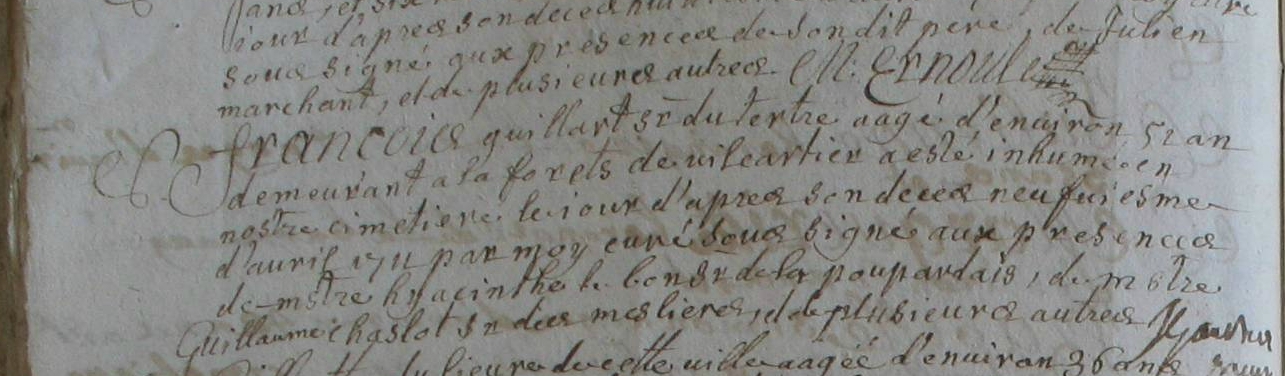 jour d'apres son deces
sous signé aux presences de son dit pere, de Julien
marchant, et de plusieurs autres. M: Ernoul
francois guillart sr du tertre aagé d'enuiron 52 an
demeurant a la forets de vilcartier a esté inhumé en
nostre cimetiere le iour d'apres son deces neufuiesme
d'auril 1711 par moy curé sous signé aux presences
de mstre hyacinthe le bon sr de la poupardais, de mstre
Guillaume chaslot sr des meslieres, et de plusieurs autres
de cette uille aagée d'enuiron 36 ans